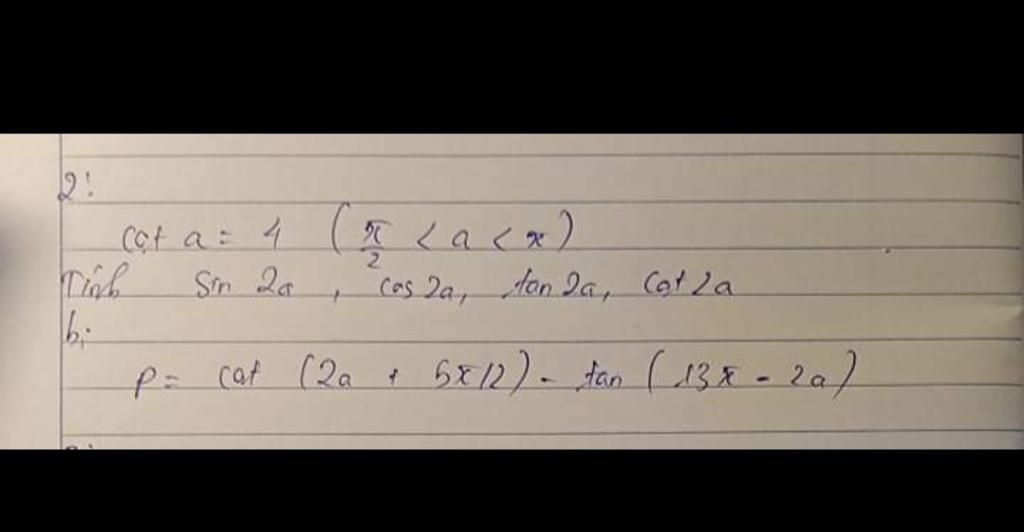 2:
cot a = 4 (π/2 < a < π)
Tính sin 2a, cos 2a, tan 2a, cot 2a
b;
P = cot (2a + 5π/2) - tan (13π - 2a)